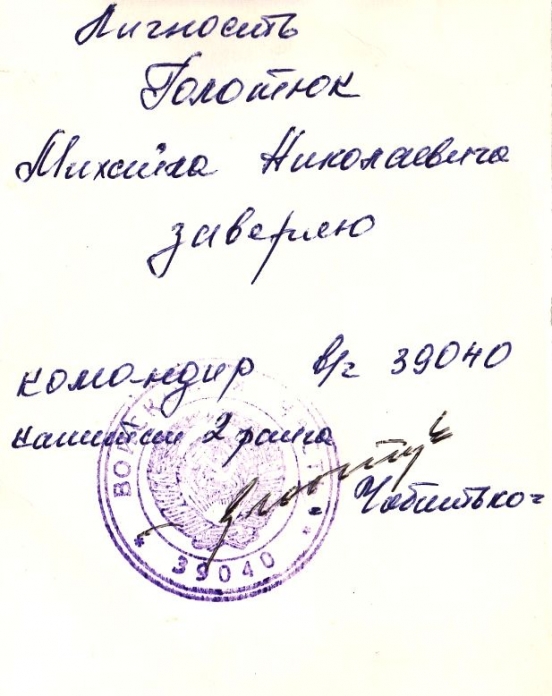 Личность
Голотюк
Михаила Николаевича
заверяю
командир в/ч 39040
капитан 2 ранга
Чобитько
ВОЙСКОВАЯ
* 39040 *